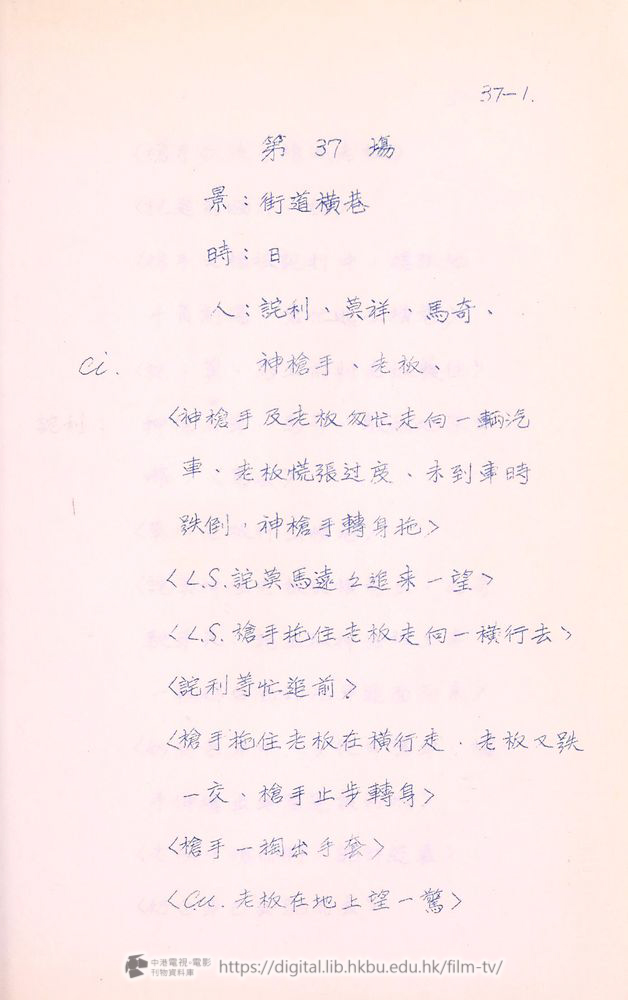 37-1.
第 37 場
景：街道橫巷
時：日
人：詫利、莫祥 馬奇、
Ci. 神槍手、老板、
〈神槍手及老板匆忙走向一輛汽
車、老板慌張过度、未到車時
跌倒，神槍手轉身拖〉
〈L.S.詫莫馬遠々追来一望〉
〈L.S.槍手拖住老板走向一橫行去〉
〈詫利等忙追前〉
〈槍手拖住老板在橫行走．老板又跌
一交、槍手止步轉身〉
〈槍手一掏出手套〉
〈Cu.老板在地上望一驚〉
中港電視·電影
刊物資料庫
https://digital.lib.hkbu.edu.hk/film-tv/